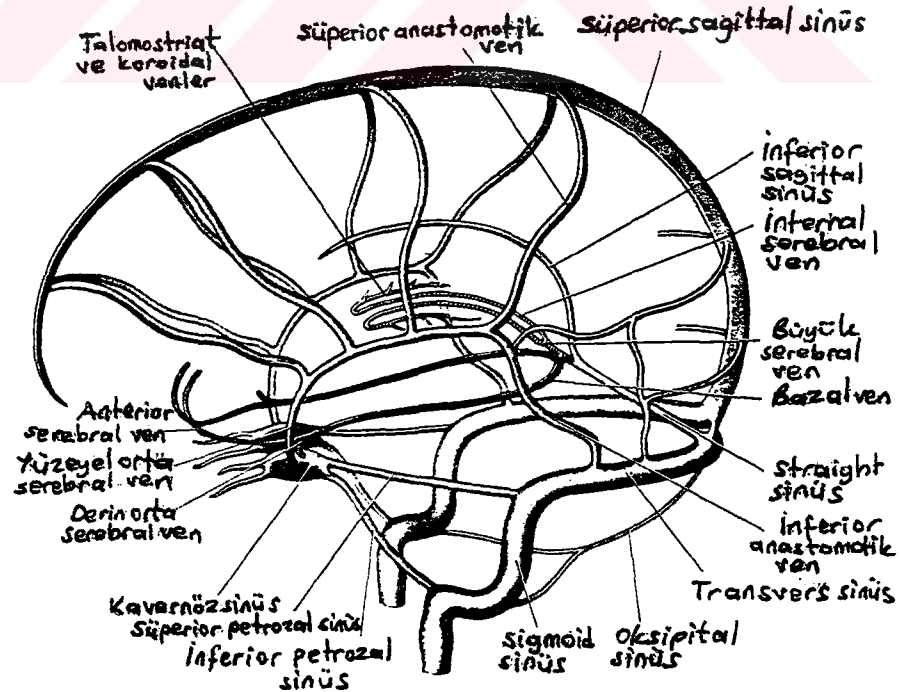 Talomostriat
ve koroidal
venler
Süperior anastomotik
ven
Süperior sagittal sinüs
İnferior
sagittal
sinüs
İnternal
serebral
ven
Büyük
serebral
ven
Bazal ven
Straight
sinüs
İnferior
anastomotik
ven
Transvers sinüs
Anterior
serebral ven
Yüzeyel orta
serebral ven
Derin orta
serebral ven
Kavernöz sinüs
Süperior petrozal sinüs
İnferior petrozal
sinüs
Sigmoid
sinüs
Oksipital
sinüs